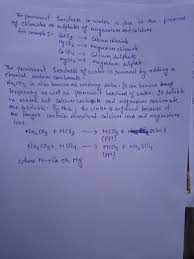 The permanent hardness of water is due to the presence
of chlorides or sulphates of magnesium and calcium
for example :- CaCl2 → Calcium chloride
MgCl2 → Magnesium chloride
CaSO4 → Calcium sulphate
MgSO4 → Magnesium sulphate
The permanent hardness of water is removed by adding a
chemical sodium carbonate.
Na2CO3 is also known as washing soda. It can remove
temporary as well as permanent hardness of water. It is soluble
in water but calcium carbonate and magnesium carbonate
are insoluble. By this, the water is softened because it
no longer contains dissolved calcium ions and magnesium
ions.
Na2CO3 + MCl2 → MCO3 + 2NaCl
(PPT)
Na2CO3 + MSO4 → MCO3 + Na2SO4
(PPT)
(where M = Ca or Mg)